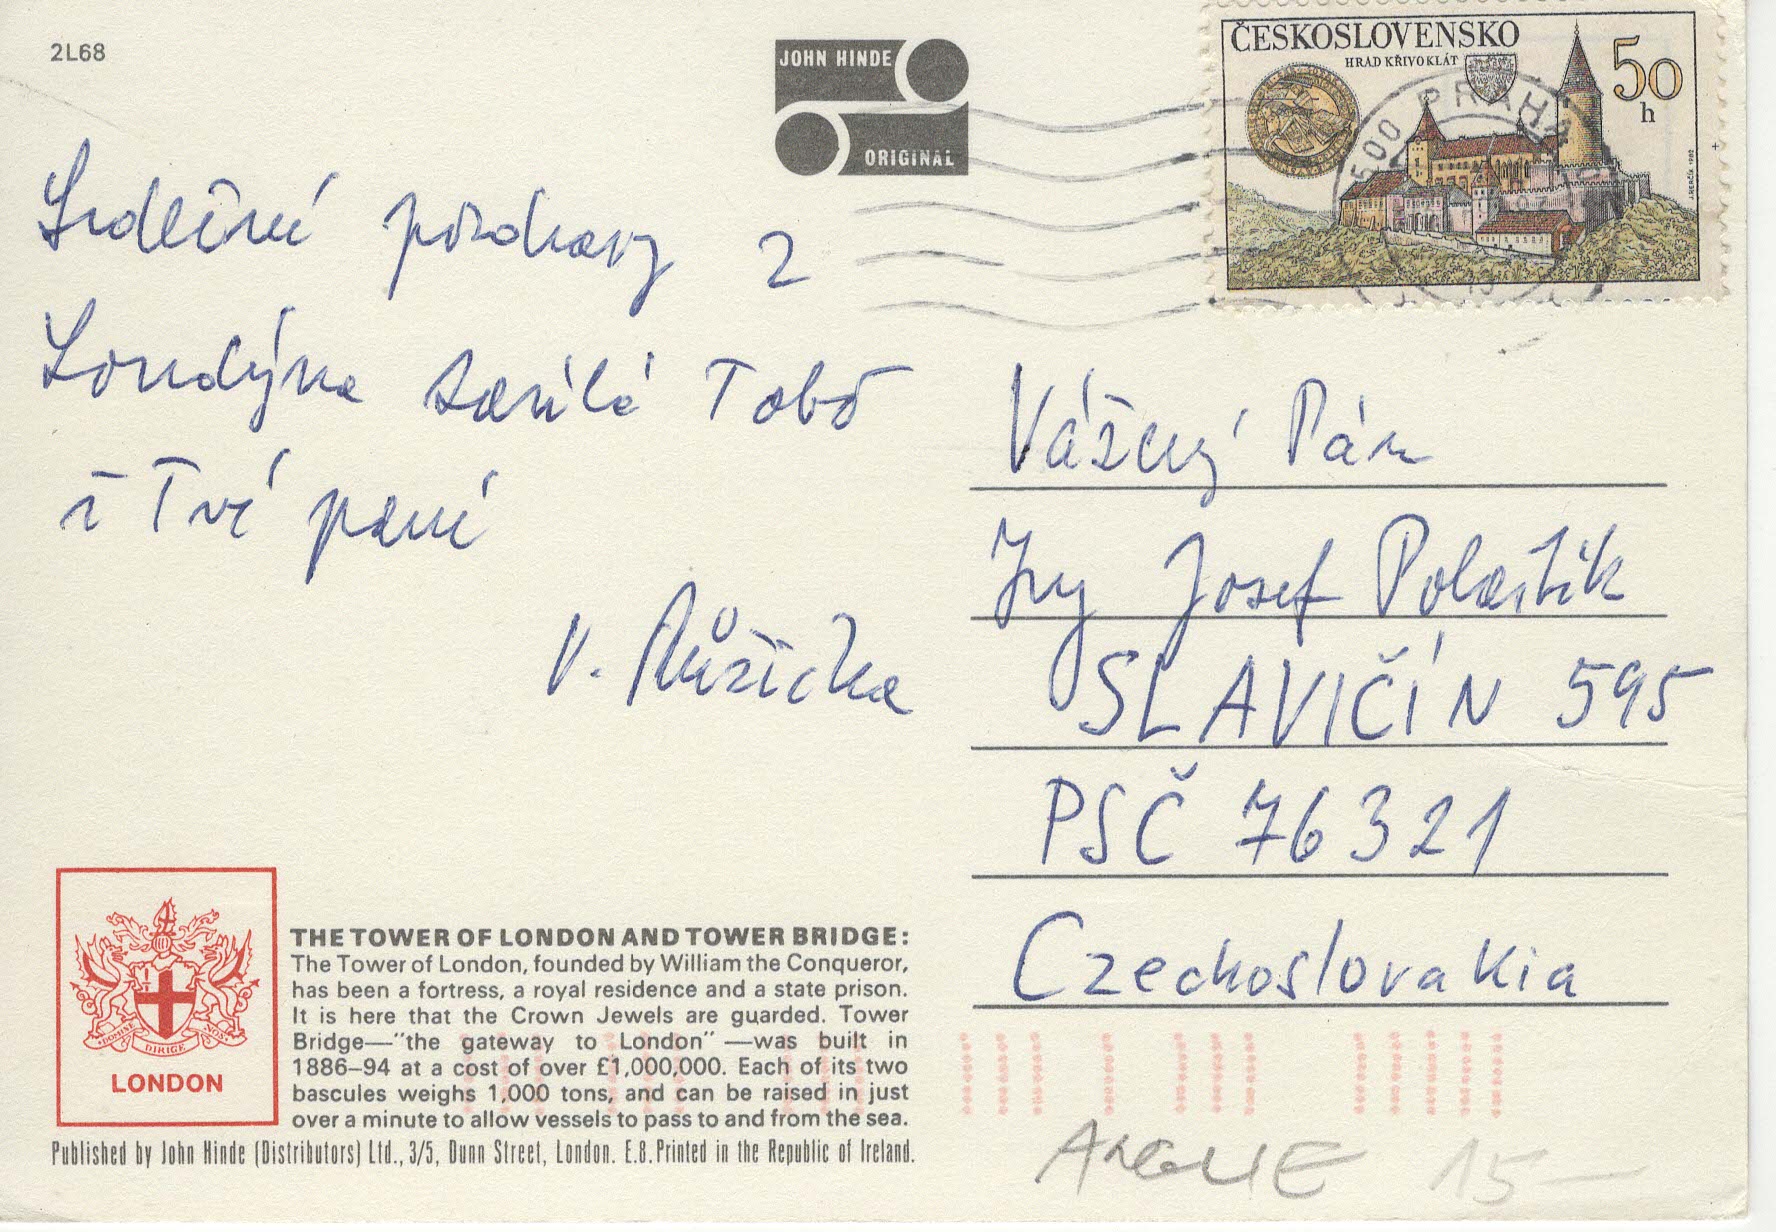 2L68
JOHN HINDE
ORIGINAL
ČESKOSLOVENSKO
HRAD KŘIVOKLÁT
50
h
J. HERČÍK 1982
500 PRAHA
Srdečné pozdravy z
Londýna zasílá Tobě
i Tvé paní
V. Růžička
Vážený Pán
Ing Josef Polaštík
SLAVIČÍN 595
PSČ 76321
Czechoslovakia
DOMINE DIRIGE NOS
LONDON
THE TOWER OF LONDON AND TOWER BRIDGE:
The Tower of London, founded by William the Conqueror,
has been a fortress, a royal residence and a state prison.
It is here that the Crown Jewels are guarded. Tower
Bridge—"the gateway to London" —was built in
1886–94 at a cost of over £1,000,000. Each of its two
bascules weighs 1,000 tons, and can be raised in just
over a minute to allow vessels to pass to and from the sea.
Published by John Hinde (Distributors) Ltd., 3/5, Dunn Street, London. E.8. Printed in the Republic of Ireland.
ANGLIE 15—